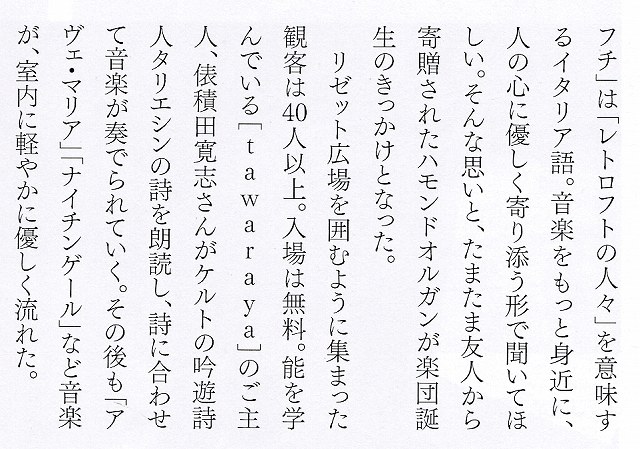 フチ」は「レトロフトの人々」を意味す
るイタリア語。音楽をもっと身近に、
人の心に優しく寄り添う形で聞いてほ
しい。そんな思いと、たまたま友人から
寄贈されたハモンドオルガンが楽団誕
生のきっかけとなった。
リゼット広場を囲むように集まった
観客は40人以上。入場は無料。能を学
んでいる「tawaraya」のご主
人、俵積田寛志さんがケルトの吟遊詩
人タリエシンの詩を朗読し、詩に合わせ
て音楽が奏でられていく。その後も「ア
ヴェ・マリア」「ナイチンゲール」など音楽
が、室内に軽やかに優しく流れた。